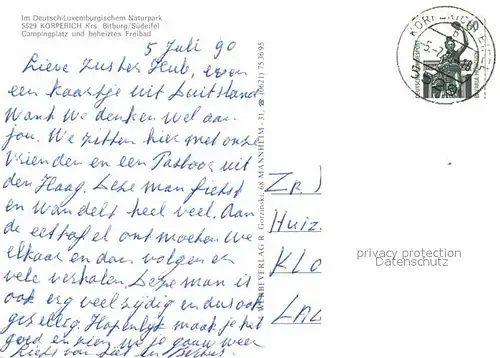 Im Deutsch-Luxemburgischem Naturpark
5529 KÖRPERICH Krs. Bitburg/Südeifel
Campingplatz und beheiztes Freibad
5 Juli 90
Lieve Zuster Hub, even
een kaartje uit Duitsland
Want we denken wel aan
jou. We zitten hier met onze
vrienden en een Pastoor uit
den Haag. Deze man fietst
en wandelt heel veel. Aan
de eettafel ontmoeten we
elkaar en dan volgen er
vele verhalen. Deze man is
ook erg veelzijdig en dus ook
gezellig. Hopenlijk maak je het
goed en zien we je gauw weer
van en
WERBEVERLAG R. Gorzinski, 68 MANNHEIM - 31, ☎ (0621) 753695
Zr.
Huiz.
KLO
privacy protection
Datenschutz